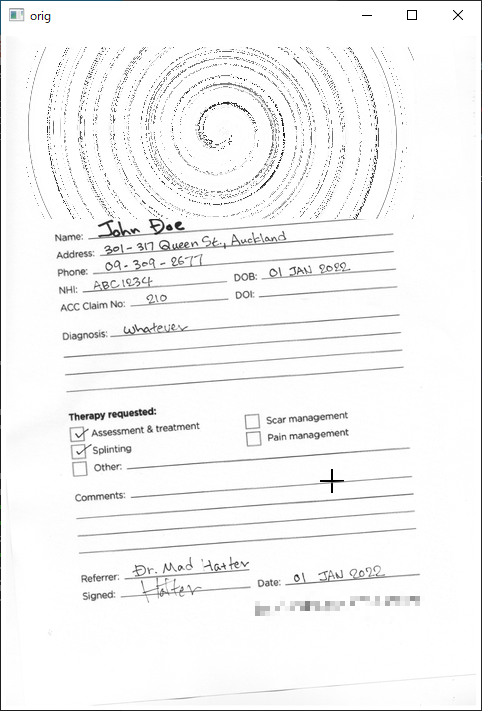 orig
Name: John Doe
Address: 301-317 Queen St., Auckland
Phone: 09-309-2677
NHI: ABC1234 DOB: 01 JAN 2022
ACC Claim No: 210 DOI:
Diagnosis: Whatever
Therapy requested:
Assessment & treatment Scar management
Splinting Pain management
Other:
Comments:
Referrer: Dr. Mad Hatter
Signed: Hatter Date: 01 JAN 2022